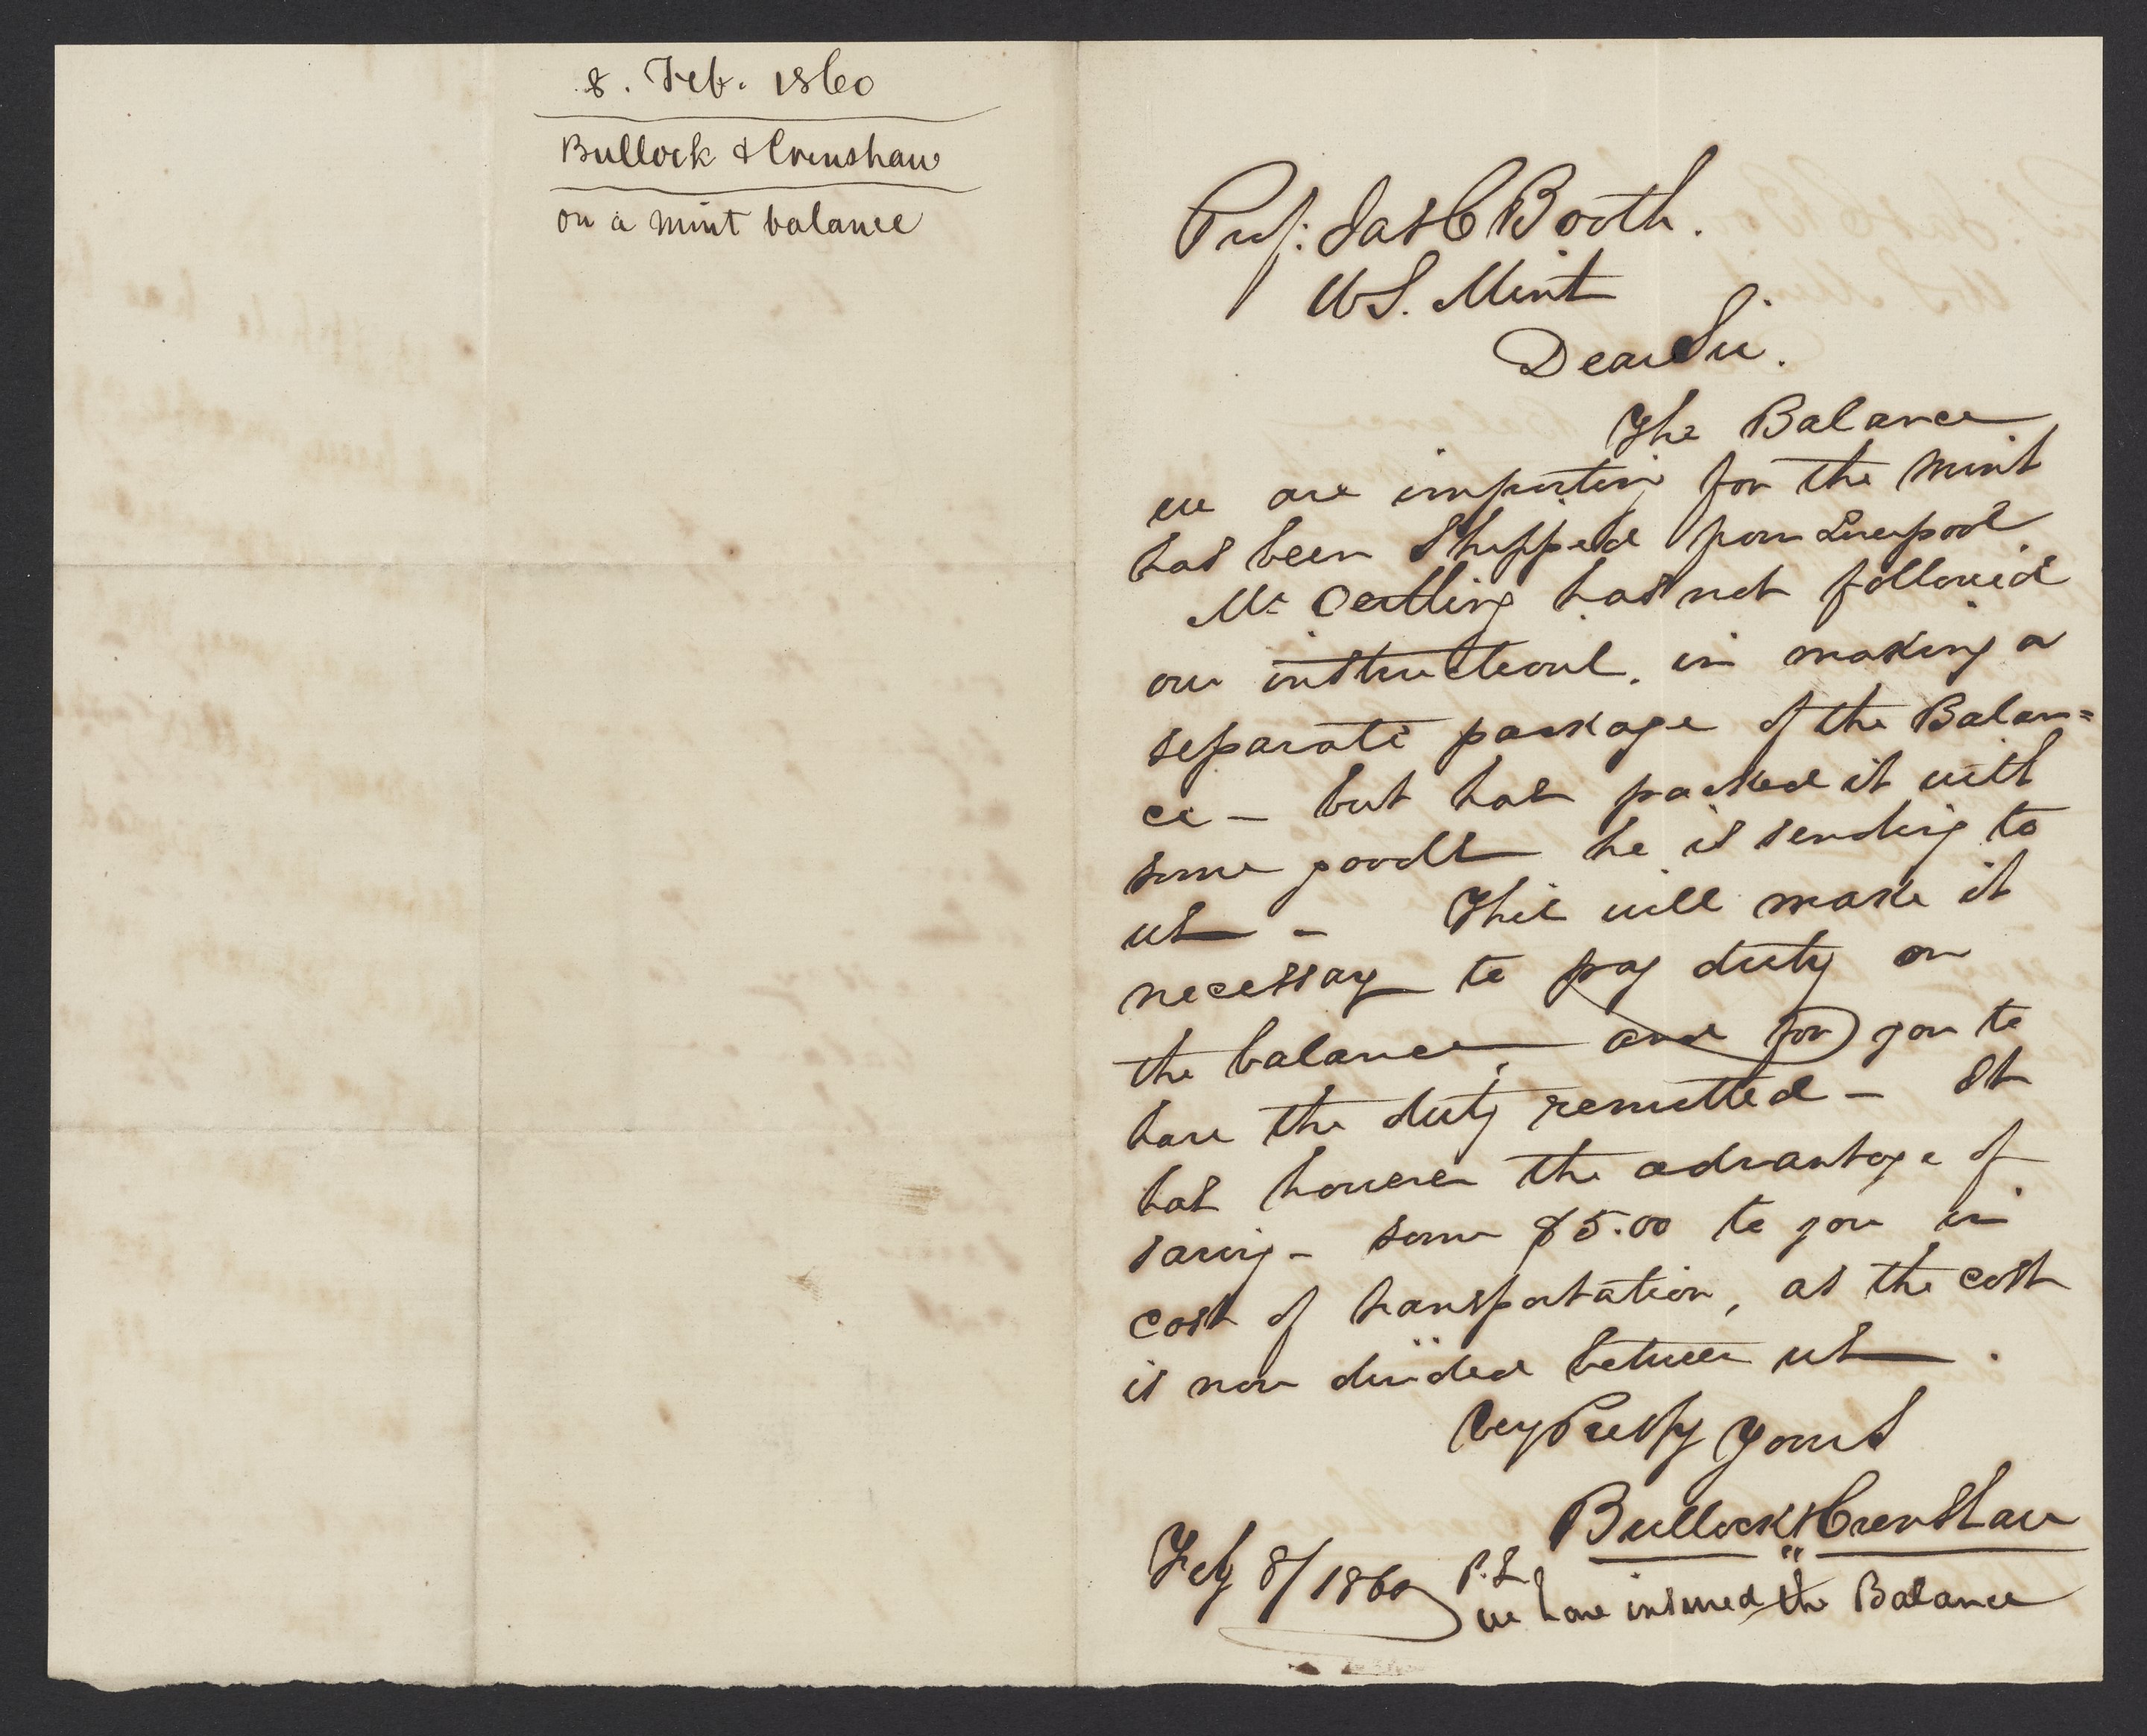 8. Feb. 1860
Bullock & Crenshaw
on a mint balance
Prof: Jas C Booth.
US. Mint
Dear Sir.
The Balance
we are importing for the Mint
has been Shipped from Liverpool
Mr Oertling has not followed
our instructions. in making a
separate package of the Balan=
ce – but has packed it with
some goods he is sending to
us – This will make it
necessary to pay duty on
the balance, and for you to
have the duty remitted – It
has however the advantage of
saving – some $5.00 to you in
cost of transportation, as the cost
is now divided between us.
Very Resply Yours
Bullock & Crenshaw
Feby 8/1860
P.S.
we have insured the Balance